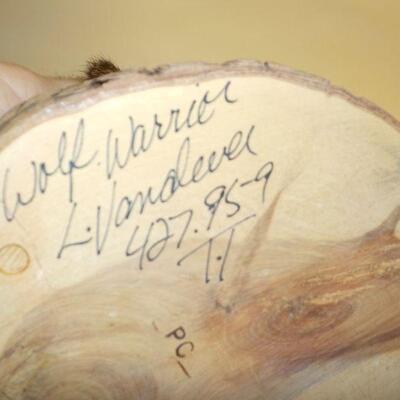 Wolf Warrior
L. Vandever
427.95-9
T.I
-PC-